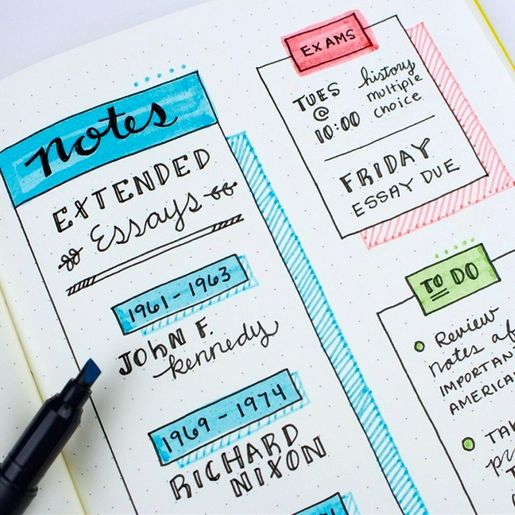 Notes
EXTENDED
Essays
1961-1963
JOHN F.
kennedy
1969-1974
RICHARD
NIXON
EXAMS
TUES
@
10:00
history
multiple
choice
FRIDAY
ESSAY DUE
TO DO
Review
notes
IMPORTANT
AMERICA